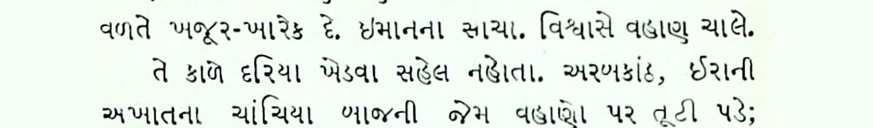 વળતે ખજૂર-ખારેક દે. ઇમાનના સાચા. વિશ્વાસે વહાણ ચાલે.
તે કાળે દરિયા ખેડવા સહેલ નહોતા. અરબકાંઠ, ઈરાની
અખાતના ચાંચિયા બાજની જેમ વહાણો પર તૂટી પડે;